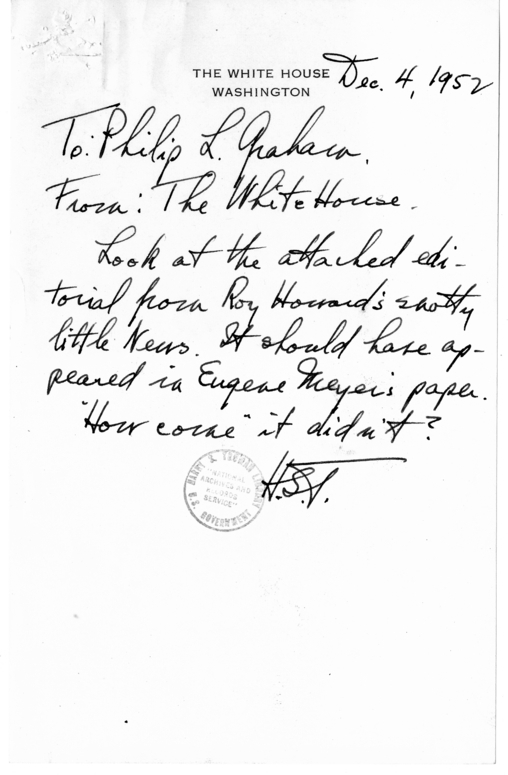 THE WHITE HOUSE
WASHINGTON
Dec. 4, 1952
To: Philip L. Graham.
From: The White House.
Look at the attached edi-
torial from Roy Howard's snotty
little News. It should have ap-
peared in Eugene Meyer's paper.
"How come" it didn't?
H.S.T.
HARRY S. TRUMAN LIBRARY
"NATIONAL
ARCHIVES AND
RECORDS
SERVICE"
U.S. GOVERNMENT